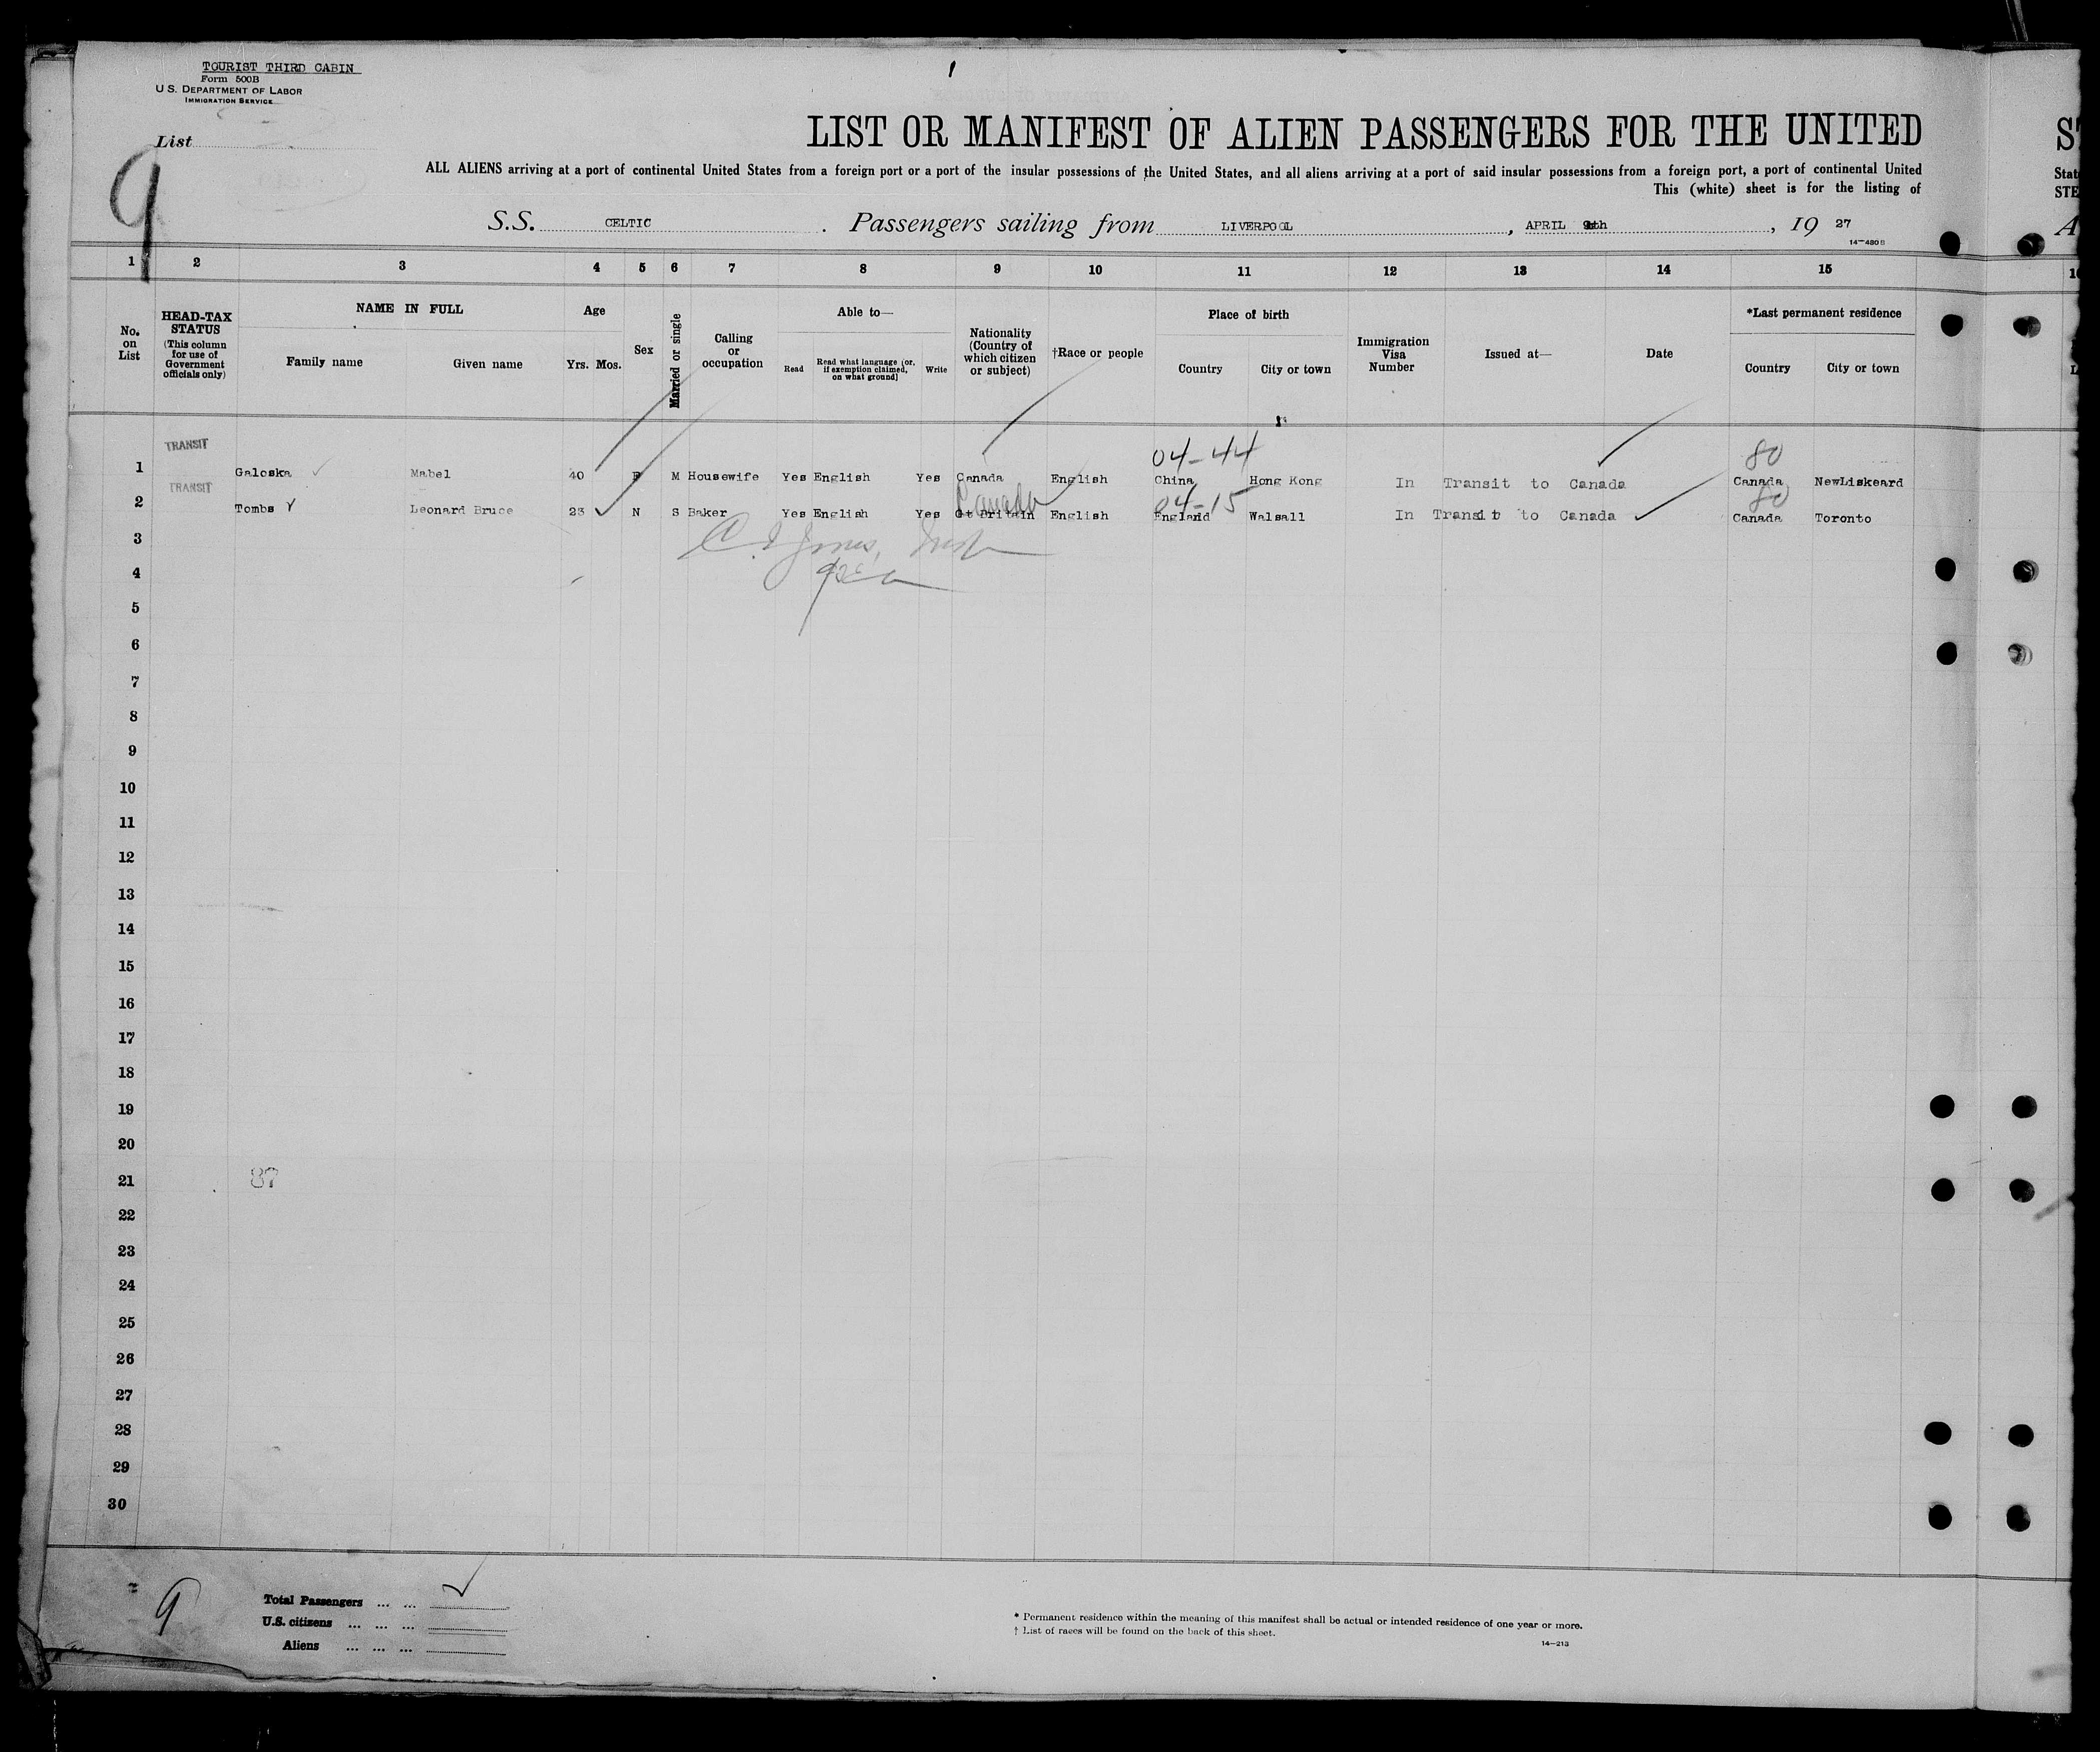 TOURIST THIRD CABIN
Form 500B
U.S. DEPARTMENT OF LABOR
IMMIGRATION SERVICE
1
List
9
LIST OR MANIFEST OF ALIEN PASSENGERS FOR THE UNITED
ALL ALIENS arriving at a port of continental United States from a foreign port or a port of the insular possessions of the United States, and all aliens arriving at a port of said insular possessions from a foreign port, a port of continental United
This (white) sheet is for the listing of
S.S. CELTIC. Passengers sailing from LIVERPOOL, APRIL 9th, 19 27
14-480 B
1 2 3 4 5 6 7 8 9 10 11 12 13 14 15
No. on List
HEAD-TAX STATUS (This column for use of Government officials only)
NAME IN FULL
Family name Given name
Age
Yrs. Mos.
Sex
Married or single
Calling or occupation
Able to—
Read Read what language [or, if exemption claimed, on what ground] Write
Nationality (Country of which citizen or subject)
†Race or people
Place of birth
Country City or town
Immigration Visa Number
Issued at—
Date
*Last permanent residence
Country City or town
TRANSIT 04-44 80
1 Galoska Mabel 40 F M Housewife Yes English Yes Canada English China Hong Kong In Transit to Canada Canada NewLiskeard
TRANSIT Canada 04-15 80
2 Tombs Leonard Bruce 23 N S Baker Yes English Yes Gt Britain English England Walsall In Transit to Canada Canada Toronto
3
4
5
6
7
8
9
10
11
12
13
14
15
16
17
18
19
20
21 87
22
23
24
25
26
27
28
29
30
9
Total Passengers ... ...
U.S. citizens ... ... ...
Aliens ... ... ...
* Permanent residence within the meaning of this manifest shall be actual or intended residence of one year or more.
† List of races will be found on the back of this sheet.
14-213